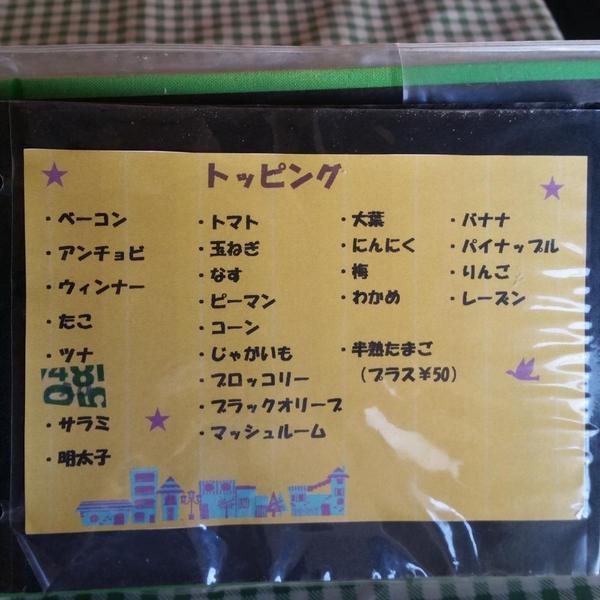 トッピング
・ベーコン
・アンチョビ
・ウィンナー
・たこ
・ツナ
・サラミ
・明太子
・トマト
・玉ねぎ
・なす
・ピーマン
・コーン
・じゃがいも
・ブロッコリー
・ブラックオリーブ
・マッシュルーム
・大葉
・にんにく
・梅
・わかめ
・半熟たまご
(プラス¥50)
・バナナ
・パイナップル
・りんご
・レーズン